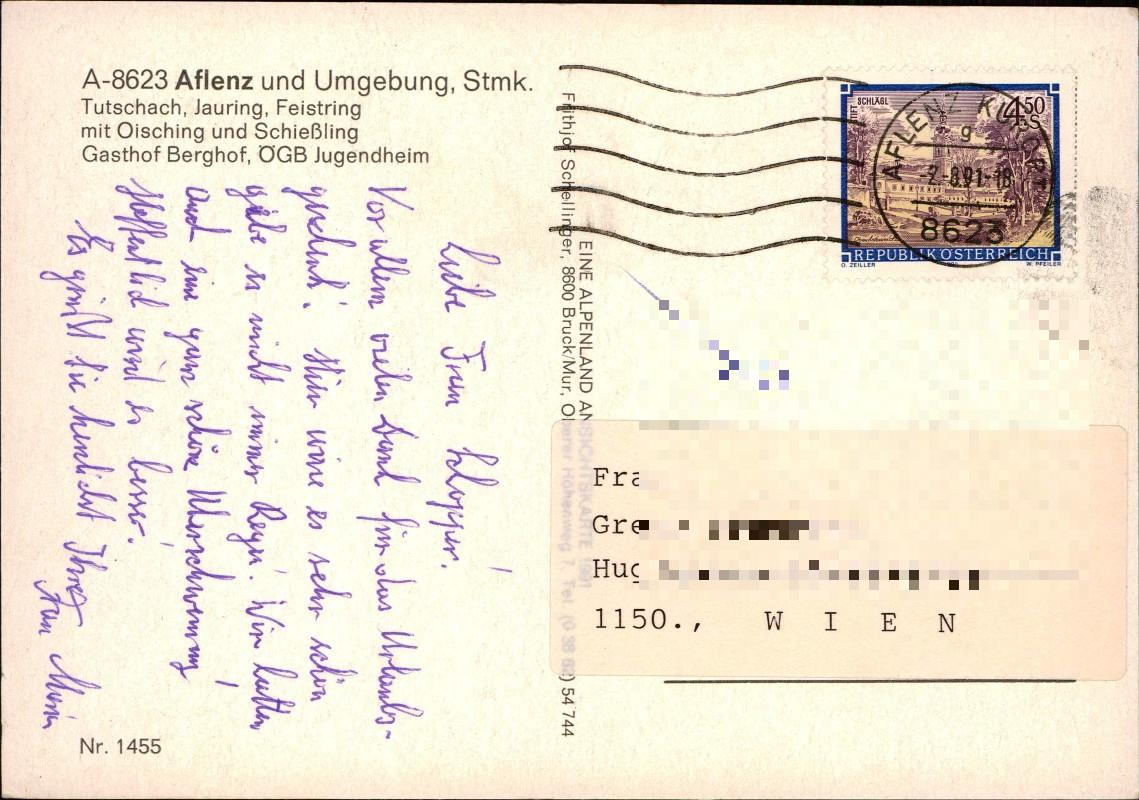 A-8623 Aflenz und Umgebung, Stmk.
Tutschach, Jauring, Feistring
mit Oisching und Schießling
Gasthof Berghof, ÖGB Jugendheim
Liebe Frau Klopper!
Vor allem vielen Dank für das Urlaubs-
geschenk! Hier wäre es sehr schön
gäbe es nicht immer Regen. Wir hatten
auch eine ganz schöne Überschwemmung!
Hoffentlich wird es besser!
Es grüßt Sie herzlichst Ihre
Frau
Nr. 1455
Frithjof Schellinger, 8600 Bruck/Mur, Oberer Höhenweg 7, Tel. (0 38 62) 54 744
EINE ALPENLAND ANSICHTSKARTE
STIFT SCHLÄGL
4.50
S
REPUBLIK ÖSTERREICH
O. ZEILLER
W. PFEILER
AFLENZ KURORT
g
2-8.91-18
8623
Fra
Gre
Hug
1150., W I E N